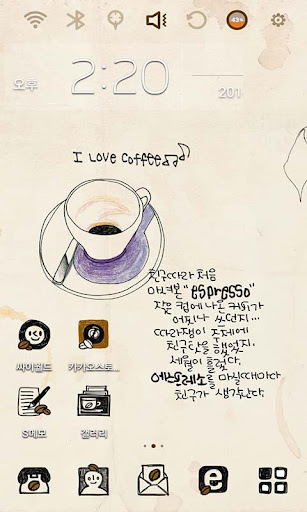 43%
오후 2:20 201
I LOVE Coffee
친구따라 처음
마셔본 "espresso"
작은 컵에 나온 커피가
어찌나 쓰던지...
따라쟁이 주제에
친구탓을 했었지.
세월이 흘렀다.
에스프레소를 마실때마다
친구가 생각난다.
싸이월드 카카오스토...
S메모 갤러리
e